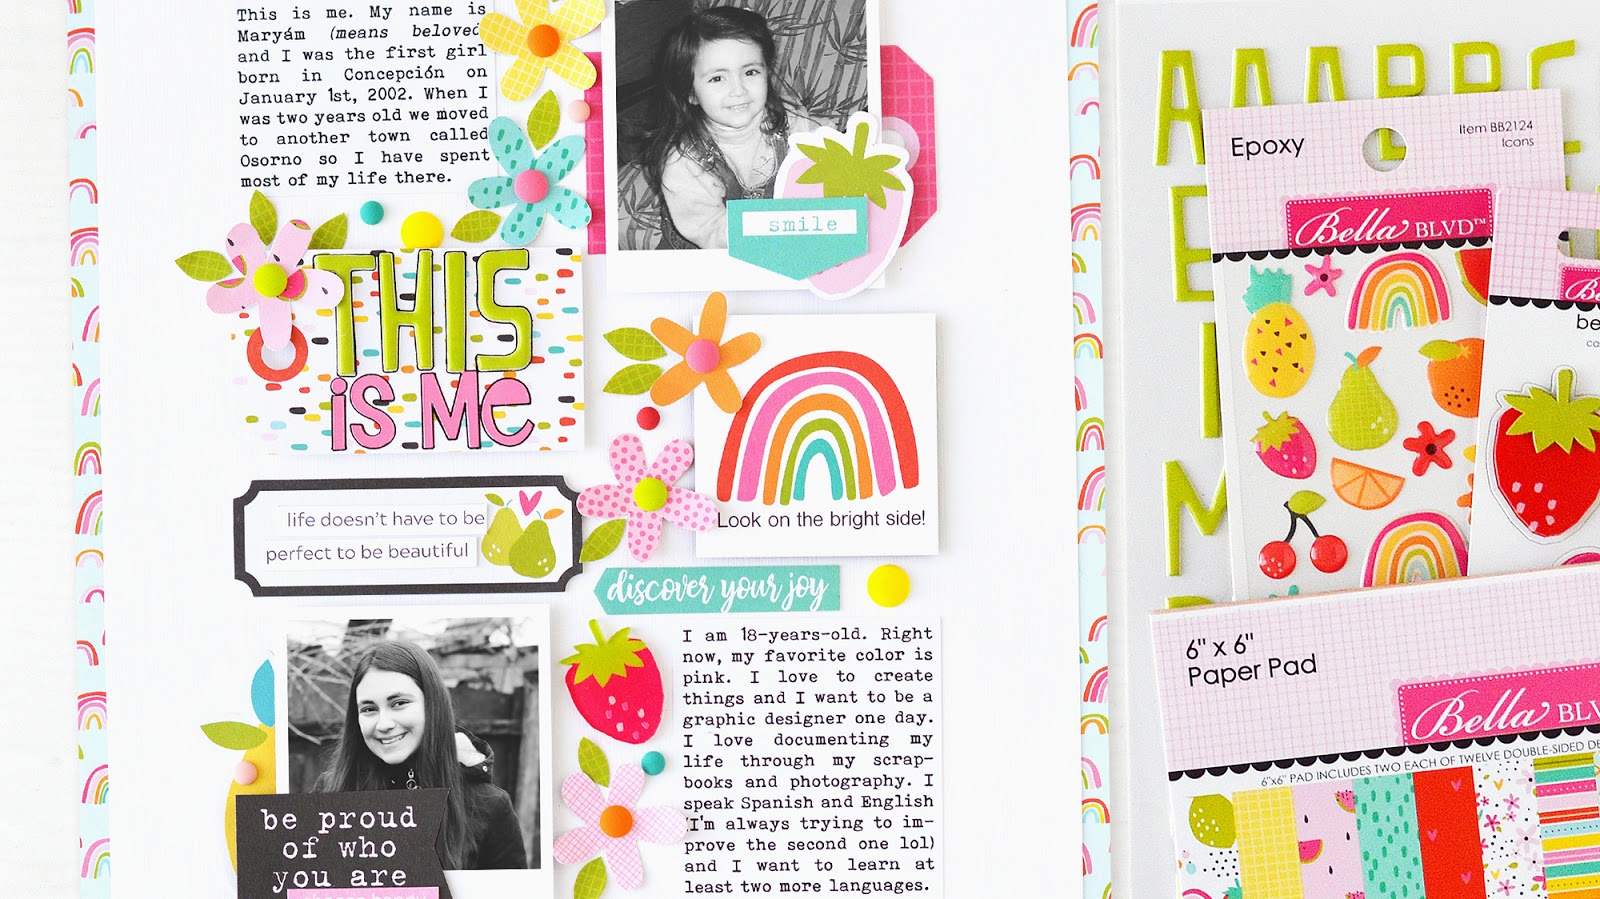 This is me. My name is
Maryám (means beloved)
and I was the first girl
born in Concepción on
January 1st, 2002. When I
was two years old we moved
to another town called
Osorno so I have spent
most of my life there.
smile
THIS
is Me
Look on the bright side!
life doesn't have to be
perfect to be beautiful
discover your joy
be proud
of who
you are
I am 18-years-old. Right
now, my favorite color is
pink. I love to create
things and I want to be a
graphic designer one day.
I love documenting my
life through my scrap-
books and photography. I
speak Spanish and English
(I'm always trying to im-
prove the second one lol)
and I want to learn at
least two more languages.
AAABBC
E
I
M
Epoxy
Item BB2124
Icons
Bella BLVD™
be
ca
6" x 6"
Paper Pad
Bella BLV
6"x6" PAD INCLUDES TWO EACH OF TWELVE DOUBLE-SIDED DE